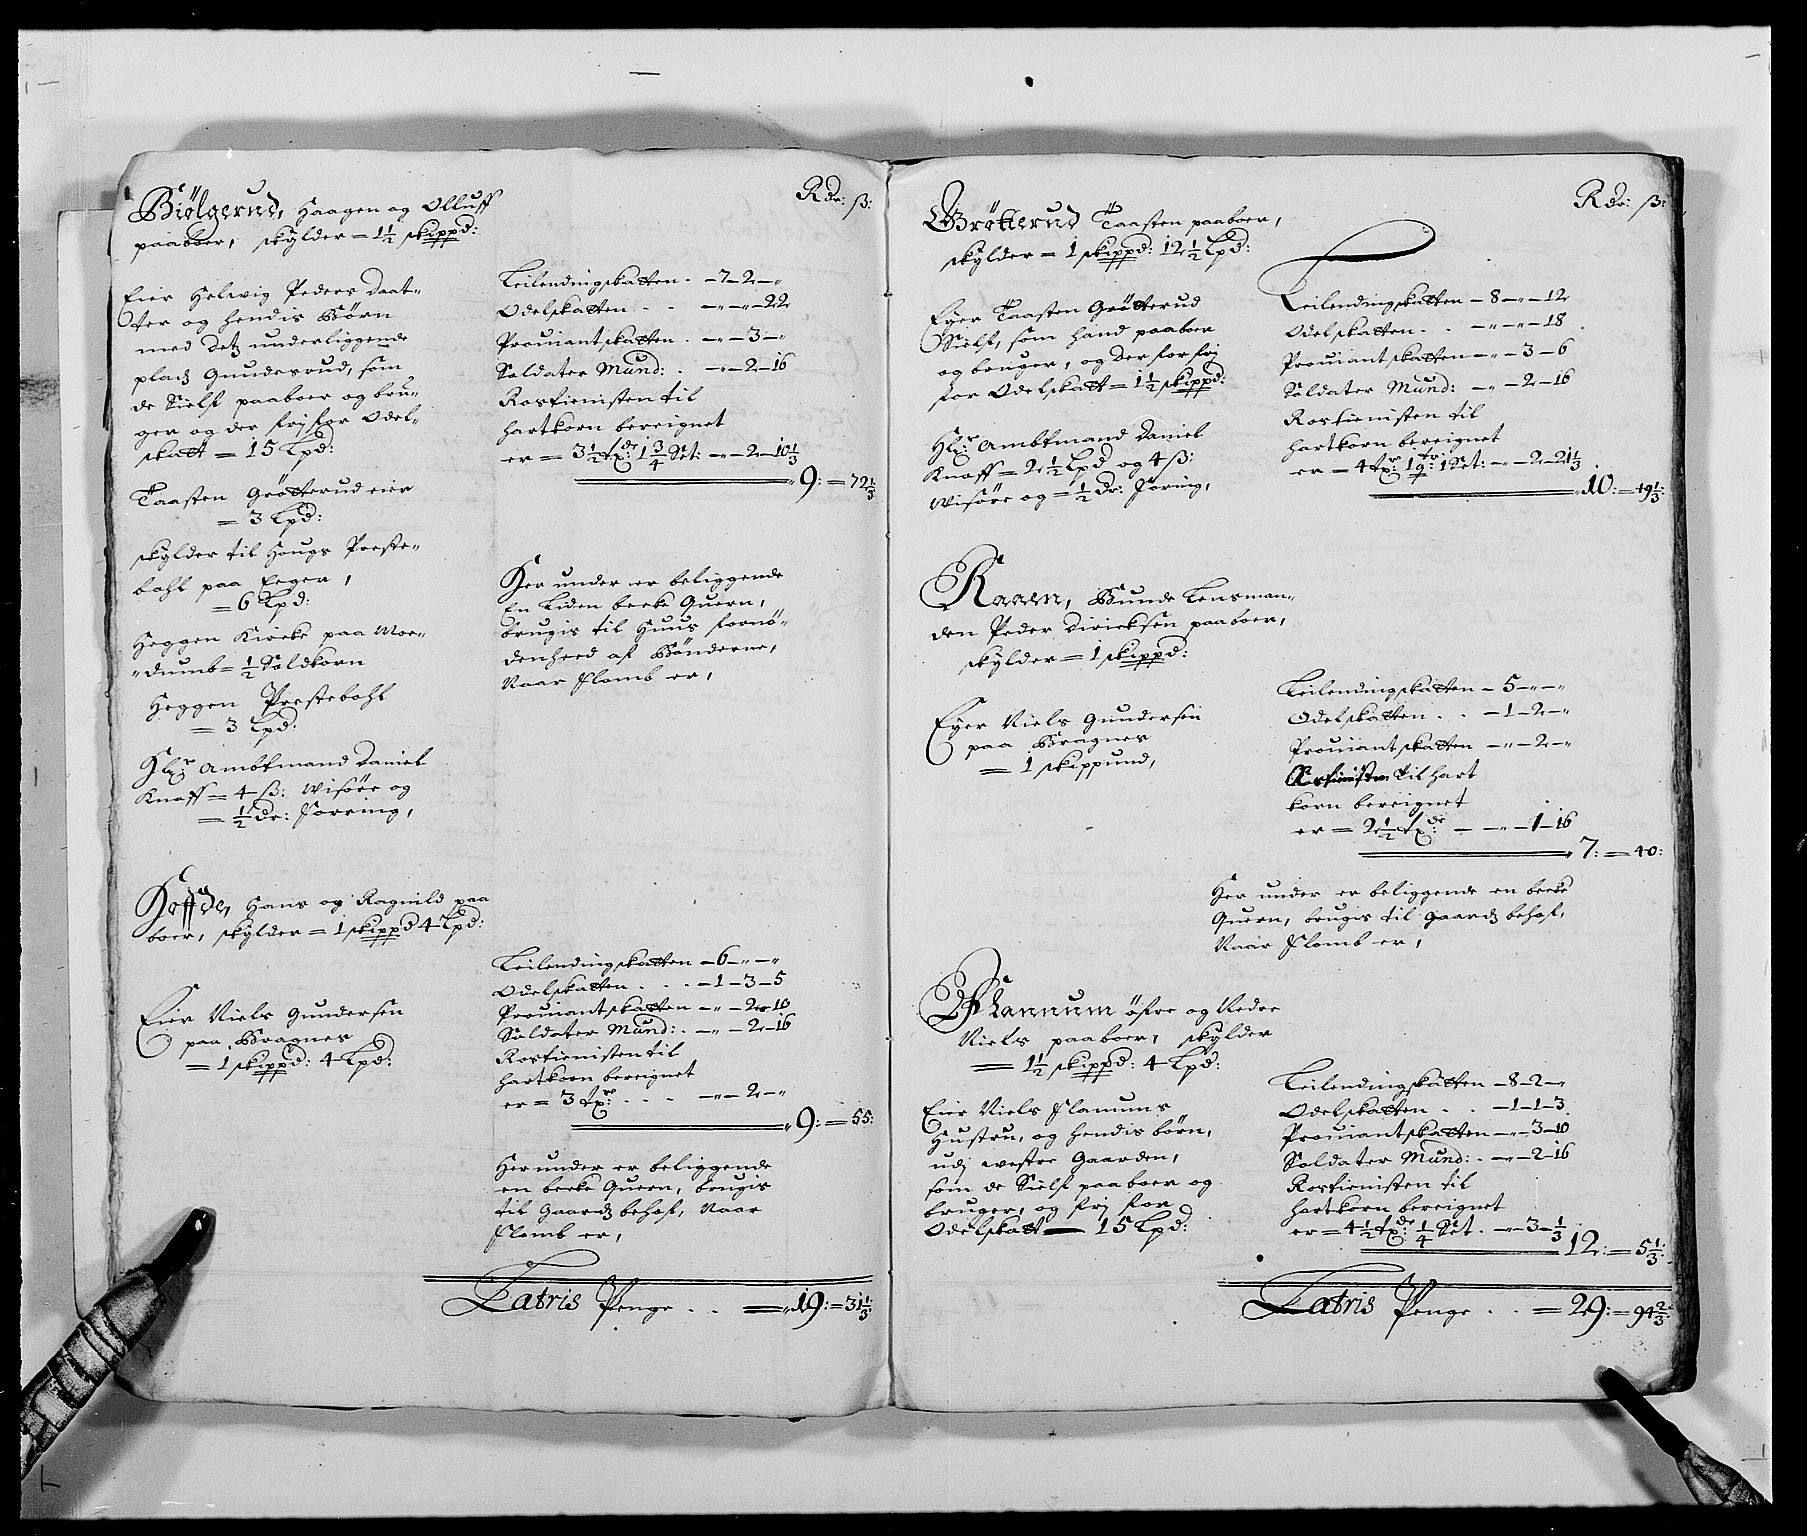 Rdr: ß:
Biølgerud, Haagen og Olluff
paaboer, skylder = 1½ skippd:
Eier Helwig Peders Daat-
ter og hendis Børn
med Detz underliggende
pladz Gunderud, som
de Sielf paaboer og bru-
ger og der frj for Odel-
skatt = 15 Lpd:
Taasten Grøtterud eier
= 3 Lpd:
skylder til Hougs Preste-
bohl paa Eeger,
= 6 Lpd:
Heggen Kircke paa Moe-
dumb = ½ Soldkorn
Heggen Prestebohl
= 3 Lpd:
Hr: Ambtmand Daniel
Knoff = 4 ß: Wisøre og
= ½ dr: Forring,
Leilendingskatten . - 7 - 2 - "
Odelskatten . . - " - " - 22
Prouiantskatten . - " - 3 - "
Soldater Mund: . - " - 2 - 16
Rostienisten til
hartkorn bereignet
er = 3½ tr: 1¾ Set: - " - 2 - 10⅓
9: = 72⅓
Her under er beliggende
En Liden becke Quern,
brugis til Huus fornø-
denheed af Bønderne,
Naar Flomb er,
Hoffde, Hans og Ragnild paa
boer, skylder = 1 skippd 4 Lpd:
Eier Niels Gundersen
paa Bragnes
= 1 skippd: 4 Lpd:
Leilendingskatten - 6 - " - "
Odelskatten . . . - 1 - 3 - 5
Prouiantskatten - " - 2 - 10
Soldater Mund: . - " - 2 - 16
Rostienisten til
hartkorn bereignet
er = 3 tr: . . . - " - 2 - "
9: = 55:
Her under er beliggende
en becke Quern, brugis
til Gaardz behof, Naar
Flomb er,
Latris Penge . . = 19: = 31⅓
Rdr: ß:
Grøtterud Taasten paaboer,
skylder = 1 skippd: 12½ Lpd:
Eyer Taasten Grøtterud
Sielf, som hand paaboer
og bruger, og der for frj
for Odelskatt = 1½ skippd:
Hr: Ambtmand Daniel
Knoff = 2½ Lpd og 4 ß:
Wisøre og = ½ dr: Foring,
Leilendingskatten - 8 - " - 12
Odelskatten . . - " - " - 18
Prouiantskatten - " - 3 - 6
Soldater Mund: - " - 2 - 16
Rostienisten til
hartkorn bereignet
er = 4 tr: 1 qr: 1 Set: - " - 2 - 21⅓
10: = 49⅓
Raaen, Bunde Lensman-
den Peder Dircksen paaboer,
skylder = 1 skippd:
Eyer Niels Gundersen
paa Bragnes
= 1 skippund,
Leilendingskatten - 5 - " - "
Odelskatten . . - 1 - 2 - "
Prouiantskatten - " - 2 - "
Rostienisten til hart
korn bereignet
er = 2½ tr: - " - 1 - 16
7: = 40:
Her under er beliggende en becke
Quern, brugis til Gaardz behof,
Naar Flomb er,
Flannum øfre og Nedre
Niels paaboer, skylder
= 1½ skippd: 4 Lpd:
Eier Niels Flanums
Hustru, og hendis børn,
udj westre Gaarden,
som de Sielf paaboer og
bruger, og frj for
Odelskatt = 15 Lpd:
Leilendingskatten - 8 - 2 - "
Odelskatten . . - 1 - 1 - 3
Prouiantskatten - " - 3 - 10
Soldater Mund: . - " - 2 - 16
Rostienisten til
hartkorn bereignet
er = 4½ tr: ¼ Set . - " - 3 - ⅓
12: = 5⅓:
Latris Penge . . = 29: = 94⅔: